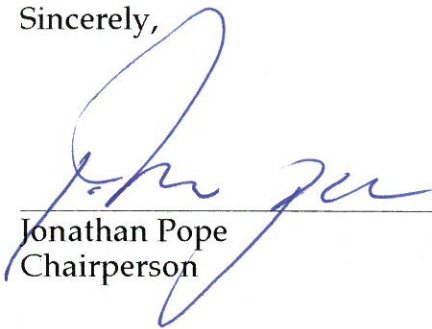 Sincerely,
Jonathan Pope
Chairperson